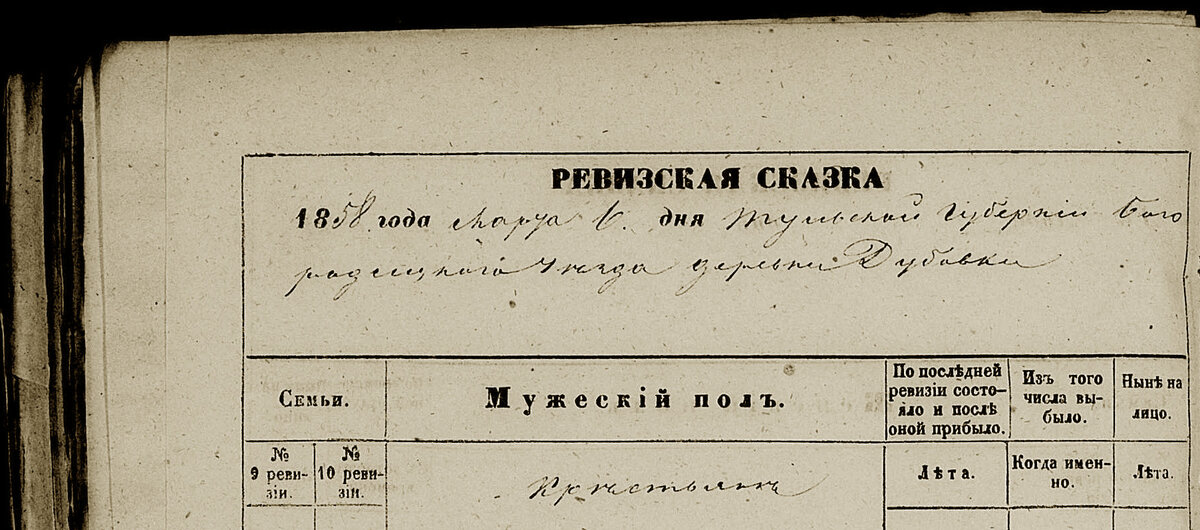 РЕВИЗСКАЯ СКАЗКА
1858 года Марта 6. дня Тульской Губерніи Бого
родицкаго Уѣзда деревни Дубовки
Семьи.
Мужескій полъ.
По послѣдней
ревизіи состо-
яло и послѣ
оной прибыло.
Изъ того
числа вы-
было.
Нынѣ на
лицо.
№
9 реви-
зіи.
№
10 реви-
зіи.
Крестьяне
Лѣта.
Когда имен-
но.
Лѣта.